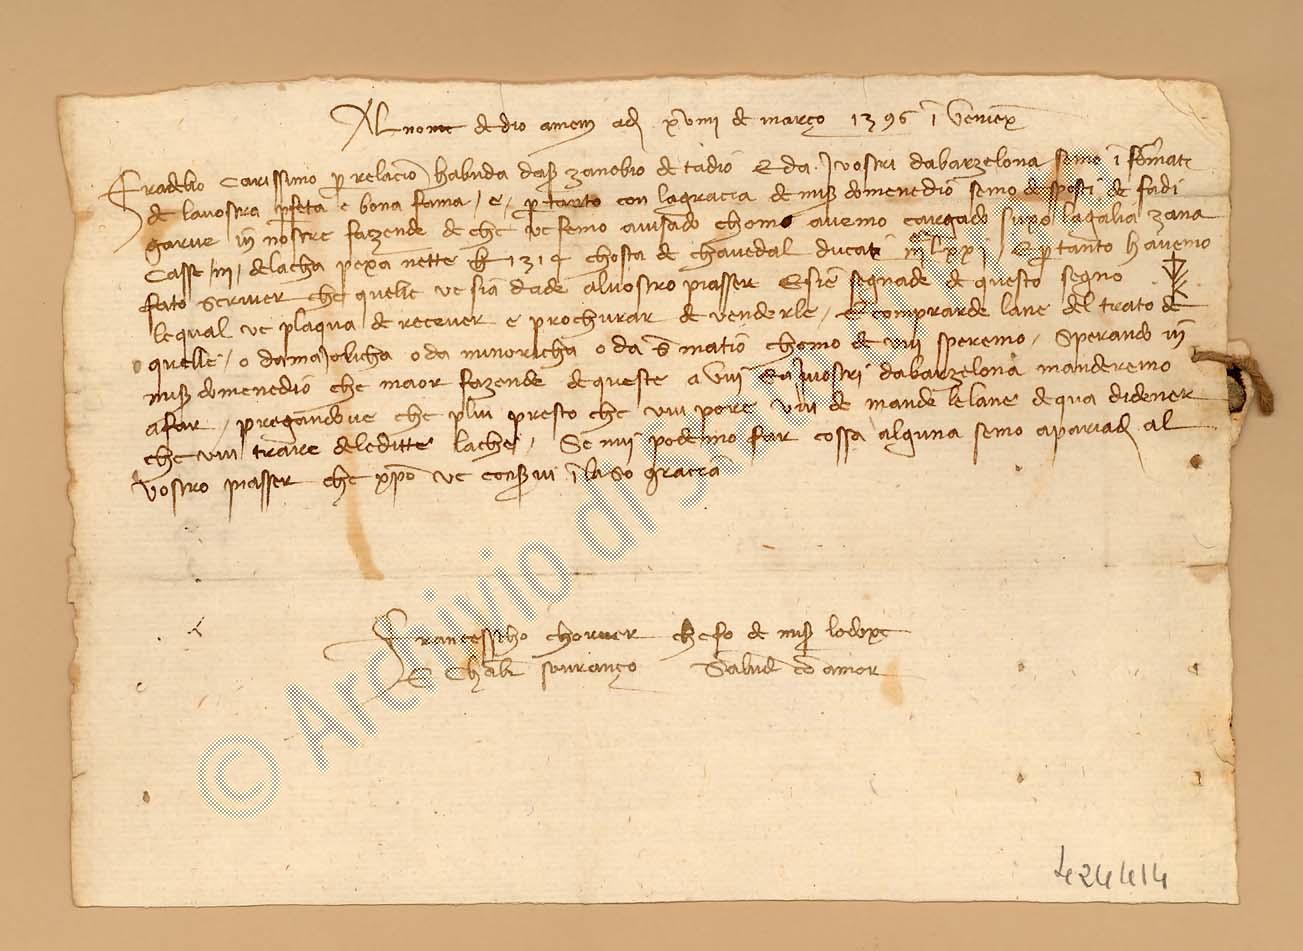 Al nome de dio amem adj xviiii de março 1396 i veniexa
Fradelo Carissimo p relaciõ habuda da ş zanobio de tadio E da i vostri da barzelona semo i fermate
de la vostra pfeta e bona fama / e p tanto con la gracia de miş domenedio semo desposti de fadi
garve in nostre fazende de che ve femo avisado chomo avemo cargado supra la galia zana
Casse iii de lacha pexa nette 1314 chosta de chavedal ducati lxxi E p tanto havemo
fato scriver che quelle ve sia dade al vostro piasser E sie segnade de questo segno
le qual ve plaqua de recever e prochurar de venderle / E comprar de lane del trato de
quelle / o da maiolicha o da minoricha o da s matio chomo de vui speremo / Sperando in
miş domenedio che maor fazende de queste a vui E a i vostri da barzelona manderemo
a far / pregandove che plui presto che vui pore vui de mande le lane de qua di dener
che vui trare dele ditte lache / Se nui podemo far cossa alguna semo apariadi al
vostro piasser che xpo ve conşvi i la so gracia
Francescho chorner che fo de miş lodoxe
E Chabr souranço Salud co amor
424414
© Archivio di Stato